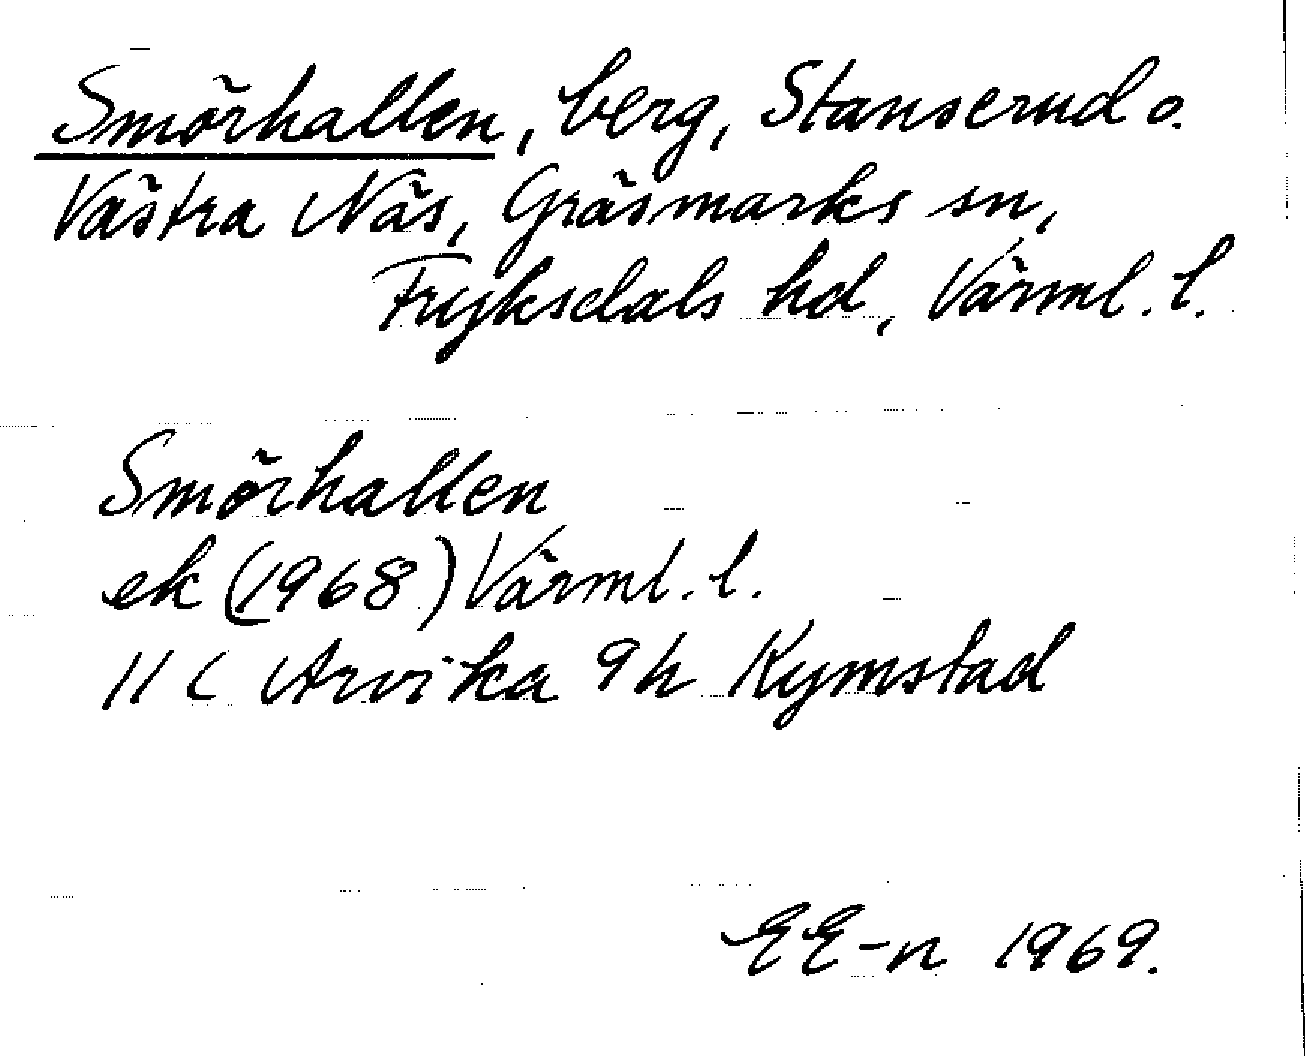 Smörhallen, berg, Stanserud o.
Västra Näs, Gräsmarks sn,
Fryksdals hd, Värml. l.
Smörhallen
ek (1968) Värml. l.
11 C Arvika 9 h Kymstad
EE-n 1969.